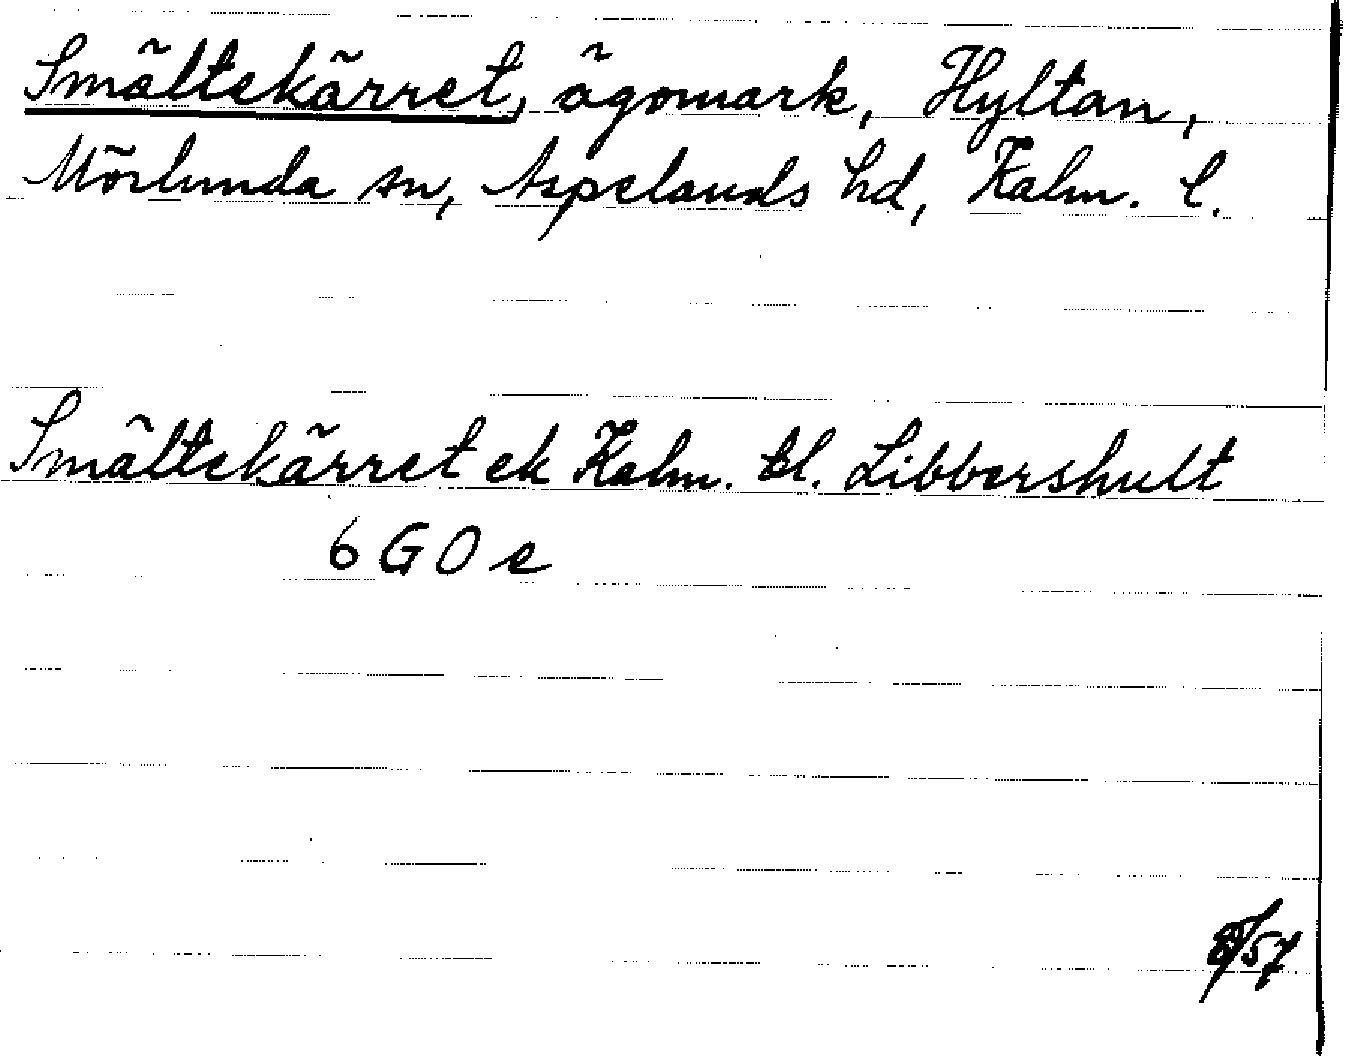 Smältekärret, ägomark, Hyltan,
Mörlunda sn, Aspelands hd, Kalm. l.
Smältekärret ek Kalm. bl. Libbershult
6 G O e